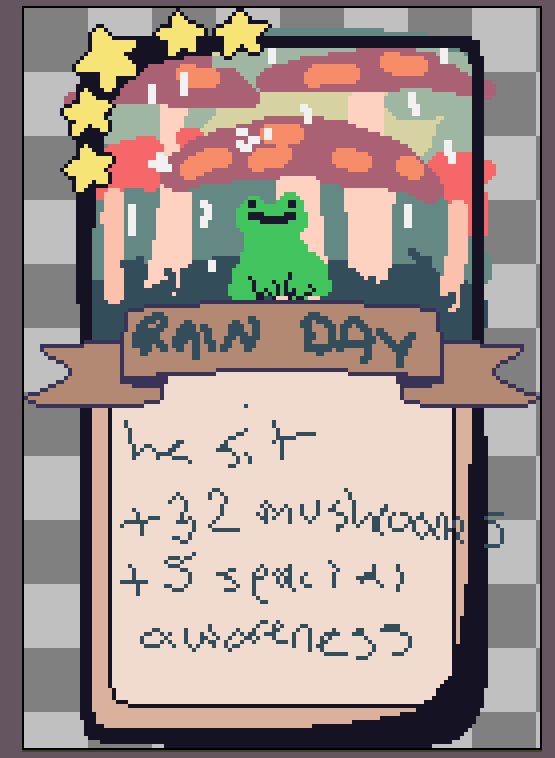 RAIN DAY
he sit
+32 mushrooms
+5 spacial
awareness